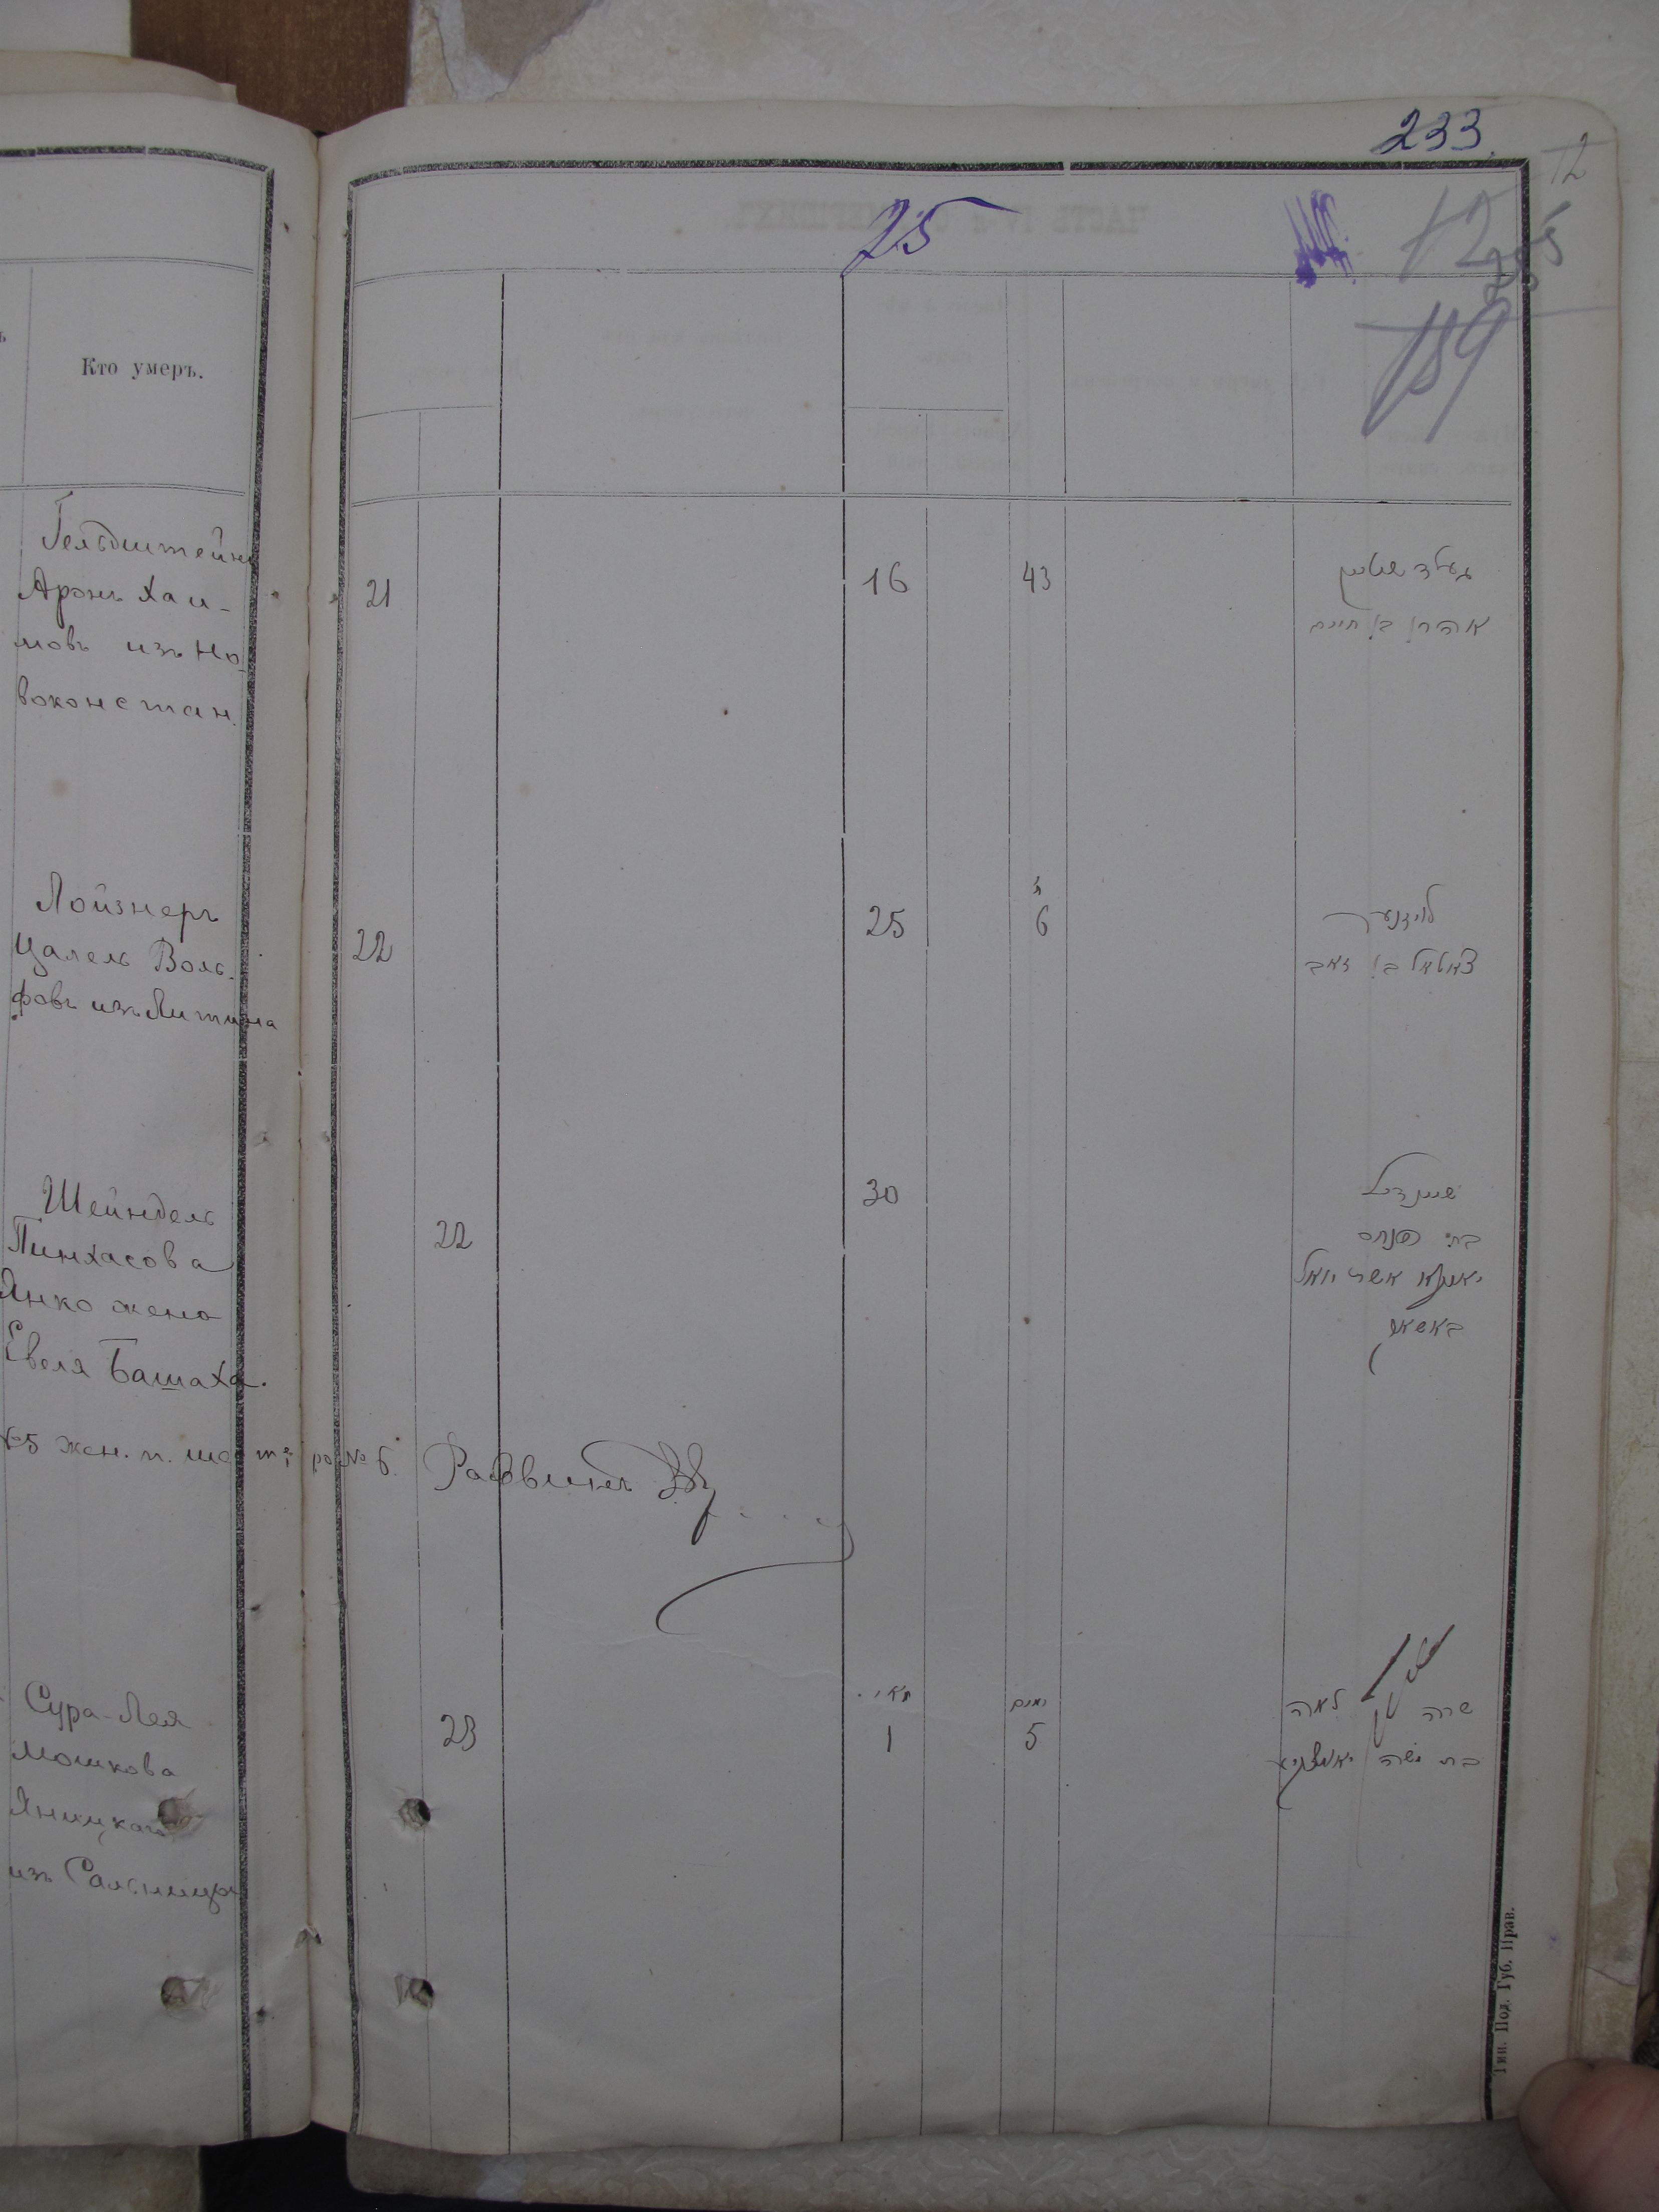 233.
12
25
12
255
189
Кто умеръ.
Гельдштейнъ
Аронъ Хаи-
мовъ изъ Но-
воконстан.
21
16
43
געלדשטיין
אהרן בן חיים
Лойзнеръ
Цалель Воль-
фовъ изъ Литина
22
25
6
לויזנער
צאלאל בן זאב
Шейндель
Пинхасова
Янко жена
Евеля Башаха.
22
30
שיינדיל
בת פנחס
יאנקא אשת יואל
באשאך
№5 жен. п. шестой №6. Раввинъ
Сура-Лея
Мошкова
Яницкаго
изъ Сальницы
23
1
ימים
5
שרה לאה
בת משה יאניצקי
Тип. Под. Губ. Прав.